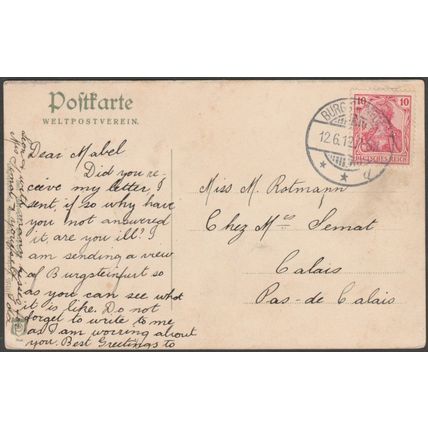 Postkarte
WELTPOSTVEREIN.
Dear Mabel
Did you re-
ceive my letter I
sent if so why have
you not answered
it, are you ill? I
am sending a view
of Burgsteinfurt so
as you can see what
it is like. Do not
forget to write to me
as I am worring about
you. Best Greetings to
Miss M. Rotmann
Chez Mme Semat
Calais
Pas-de-Calais
BURG
12.6.12
10 10
DEUTSCHES REICH